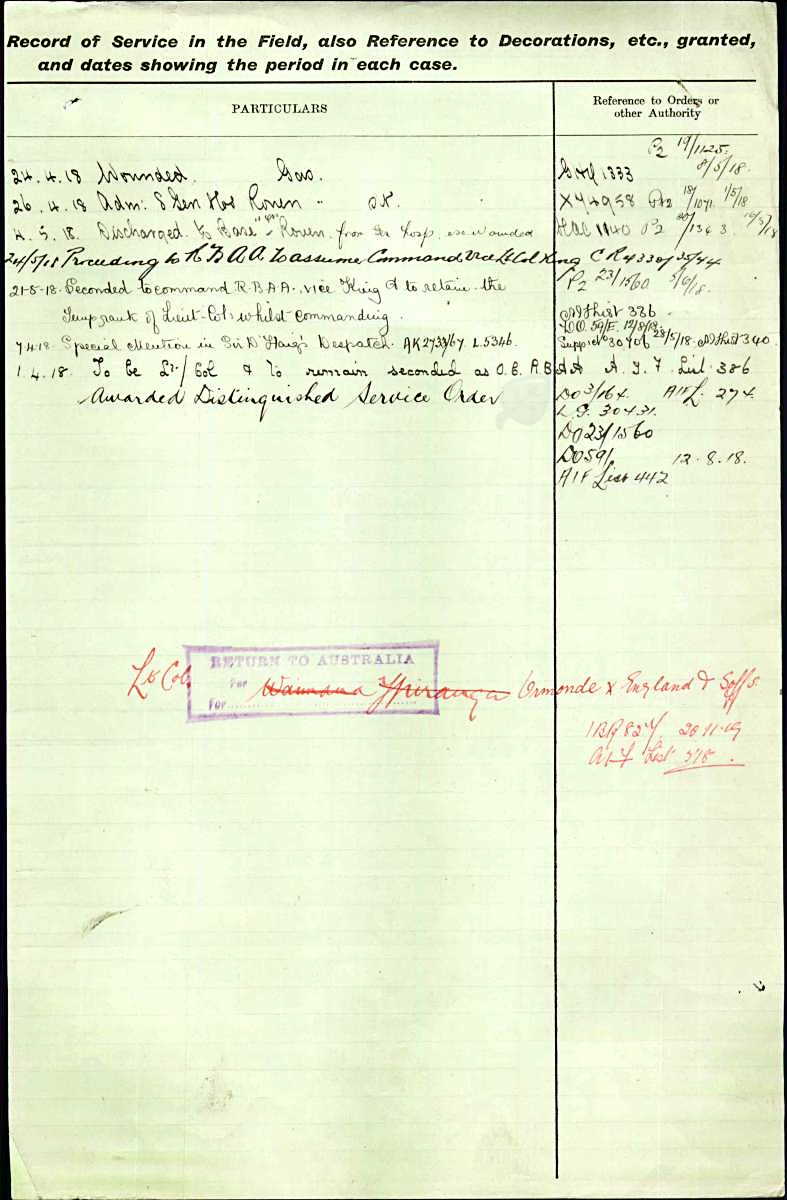 Record of Service in the Field, also Reference to Decorations, etc., granted,
and dates showing the period in each case.
PARTICULARS
Reference to Orders or
other Authority
P2 19/1125.
8/5/18.
24.4.18 Wounded. Gas. 1333
26.4.18 Adm: 8 Gen Hos Rouen " XY4958 18/1071 1/5/18
4.5.18. Discharged to Base Rouen from Hosp. ex wounded 1140 P2
24/5/18 Proceeding to R B A A to assume Command Vice Lt Col King CR 4330/
P2 23/1560 3/6/18.
21-5-18. Seconded to command R.B.A.A. vice King & to retain the
Temp rank of Lieut-Col: whilst commanding. 336
DO. 59/ 12/8/18
7 4 18. Special Mention in Sir D Haig's Despatch. AK2733/67 L.5346. 28/5/18. 340
1.4.18. To be Lt/Col & to remain seconded as O.C. A.I.F. List 386
Awarded Distinguished Service Order DO 3/164. AIF L. 274.
L.G. 30431.
DO 23/1560
DO 59/ 12.8.18.
AIF List 442
Lt Col.
RETURN TO AUSTRALIA
Per Waimana Ypiranga Ormonde x England
For
20.11.19
AIF List 518.